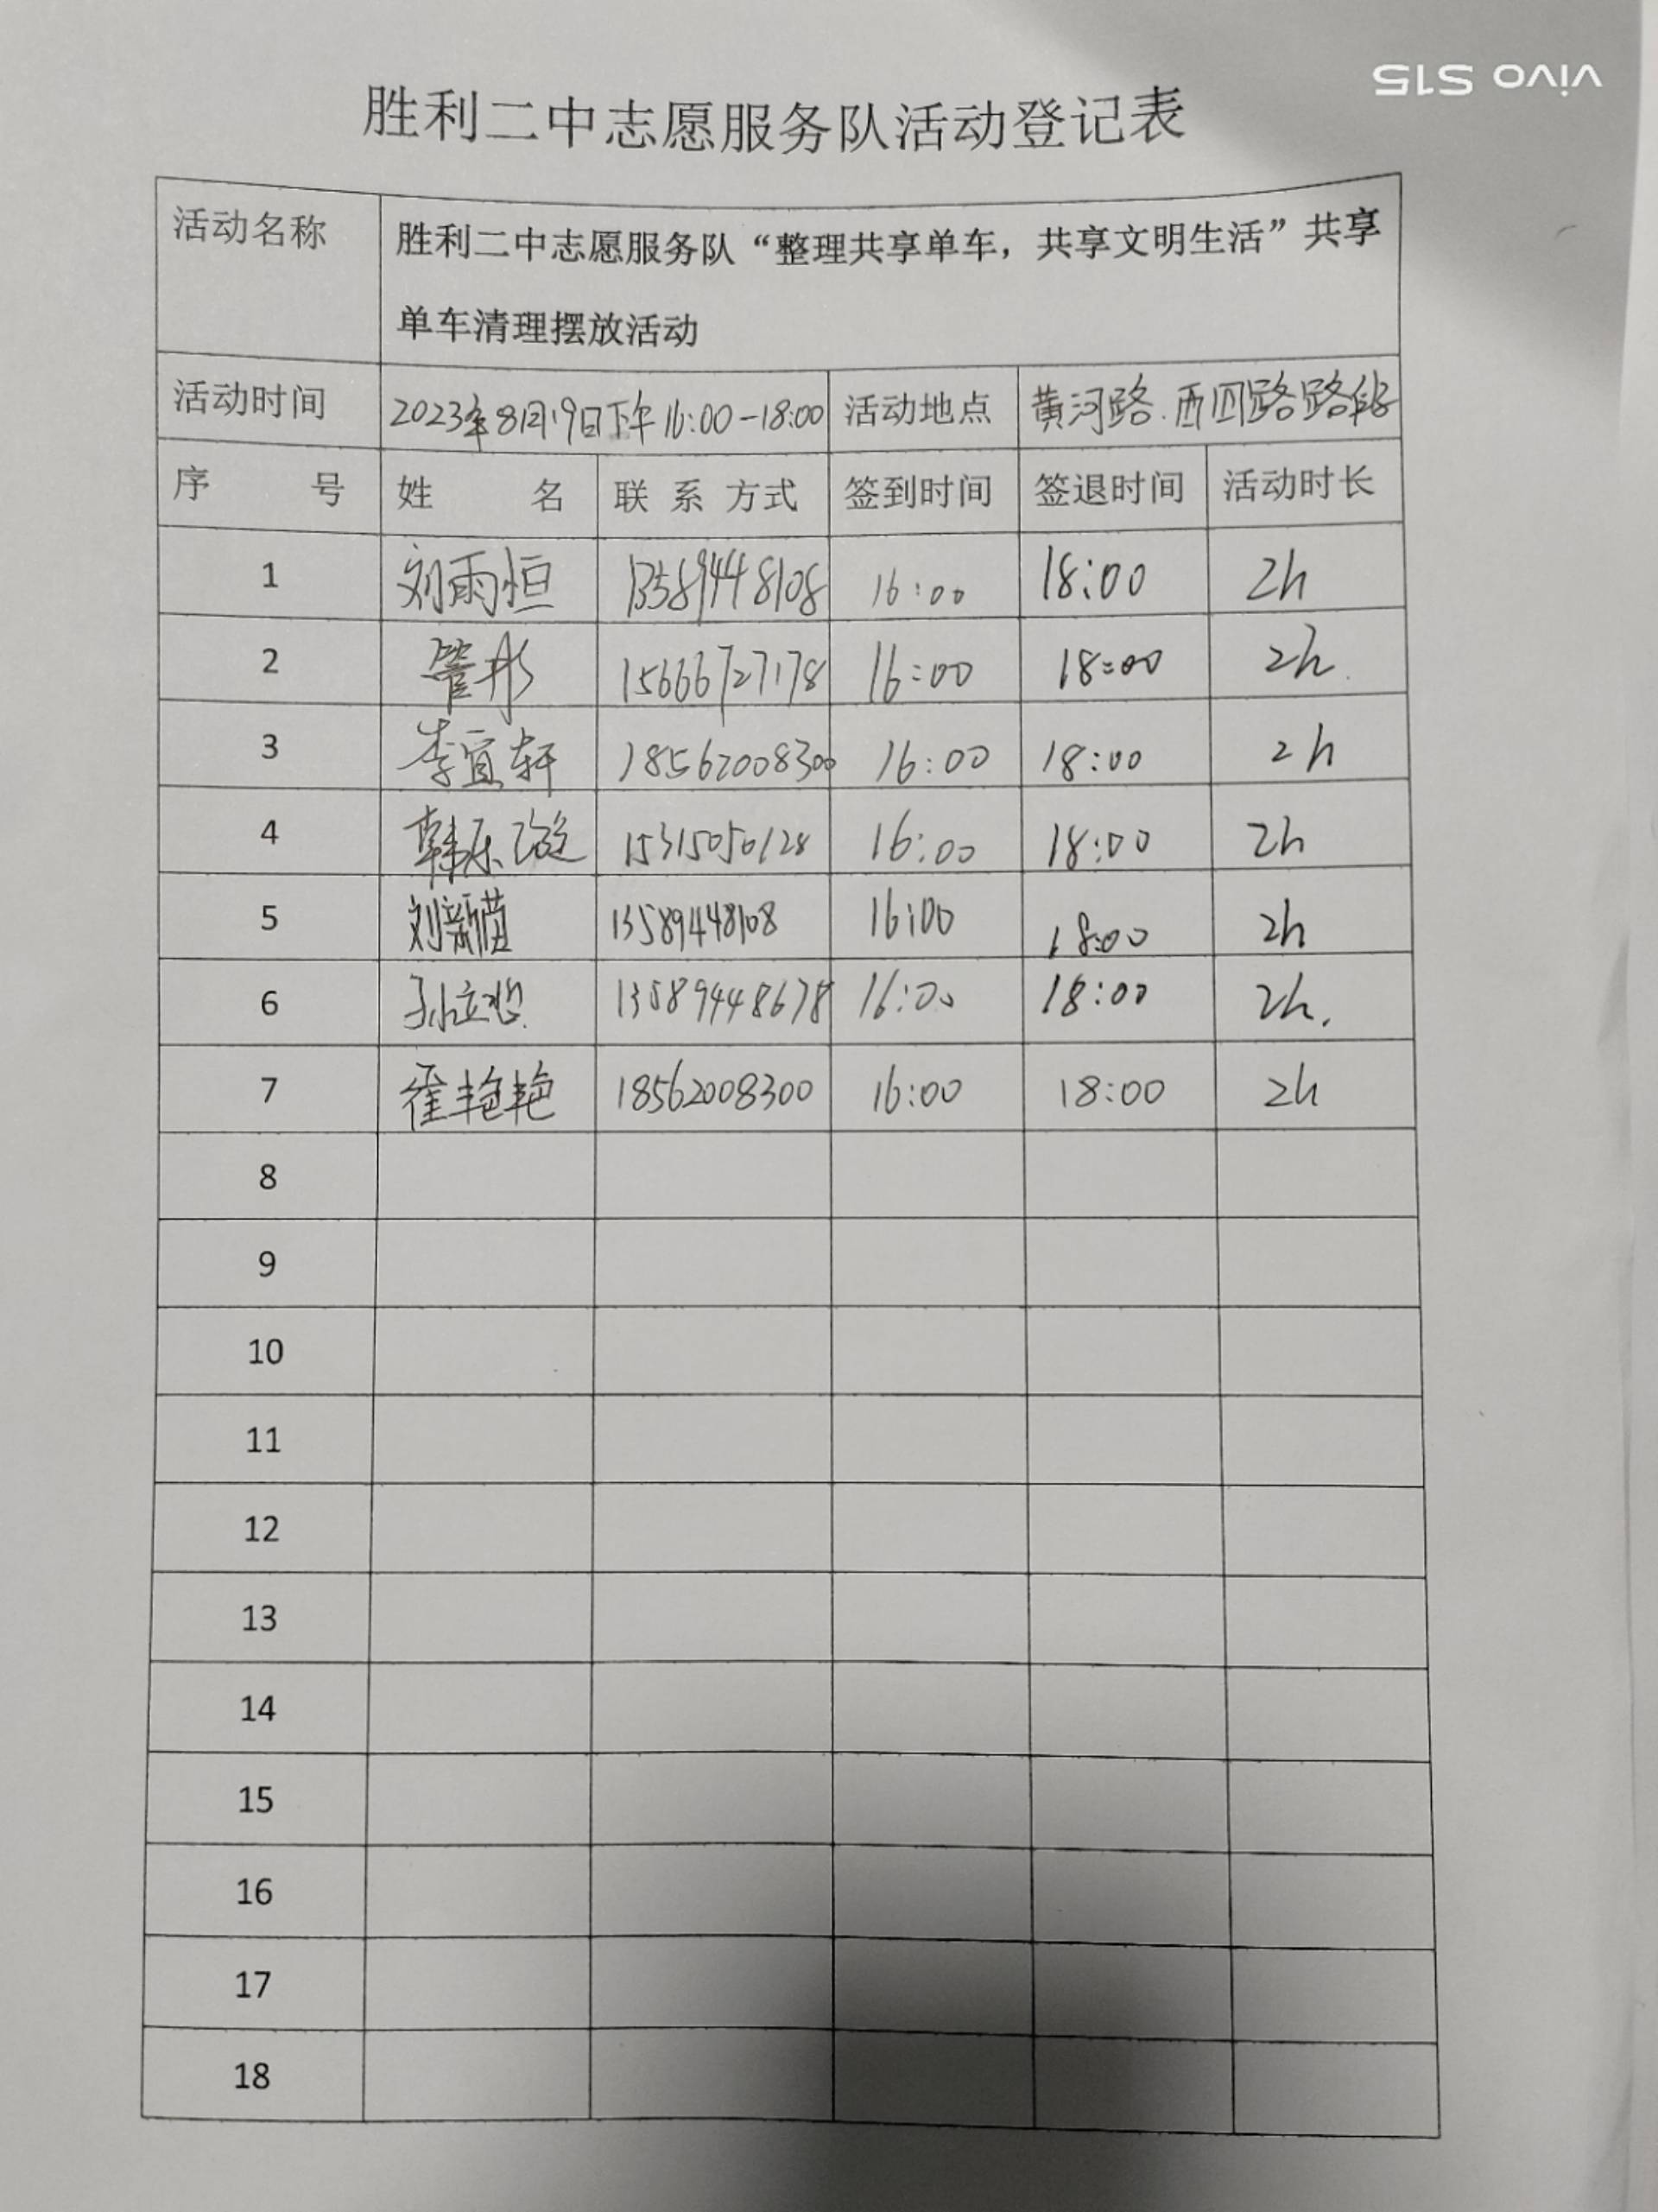 vivo S15
胜利二中志愿服务队活动登记表
活动名称 胜利二中志愿服务队“整理共享单车，共享文明生活”共享
单车清理摆放活动
活动时间 2023年8月19日下午16:00-18:00 活动地点 黄河路.西四路路段
序 号 姓 名 联 系 方式 签到时间 签退时间 活动时长
1 刘雨恒 13589448108 16:00 18:00 2h
2 管彤 15666727178 16:00 18:00 2h.
3 李宜轩 18562008300 16:00 18:00 2h
4 韩乐 15315050128 16:00 18:00 2h
5 刘新苗 13589448108 16:00 18:00 2h
6 13589448678 16:00 18:00 2h.
7 崔艳艳 18562008300 16:00 18:00 2h
8
9
10
11
12
13
14
15
16
17
18